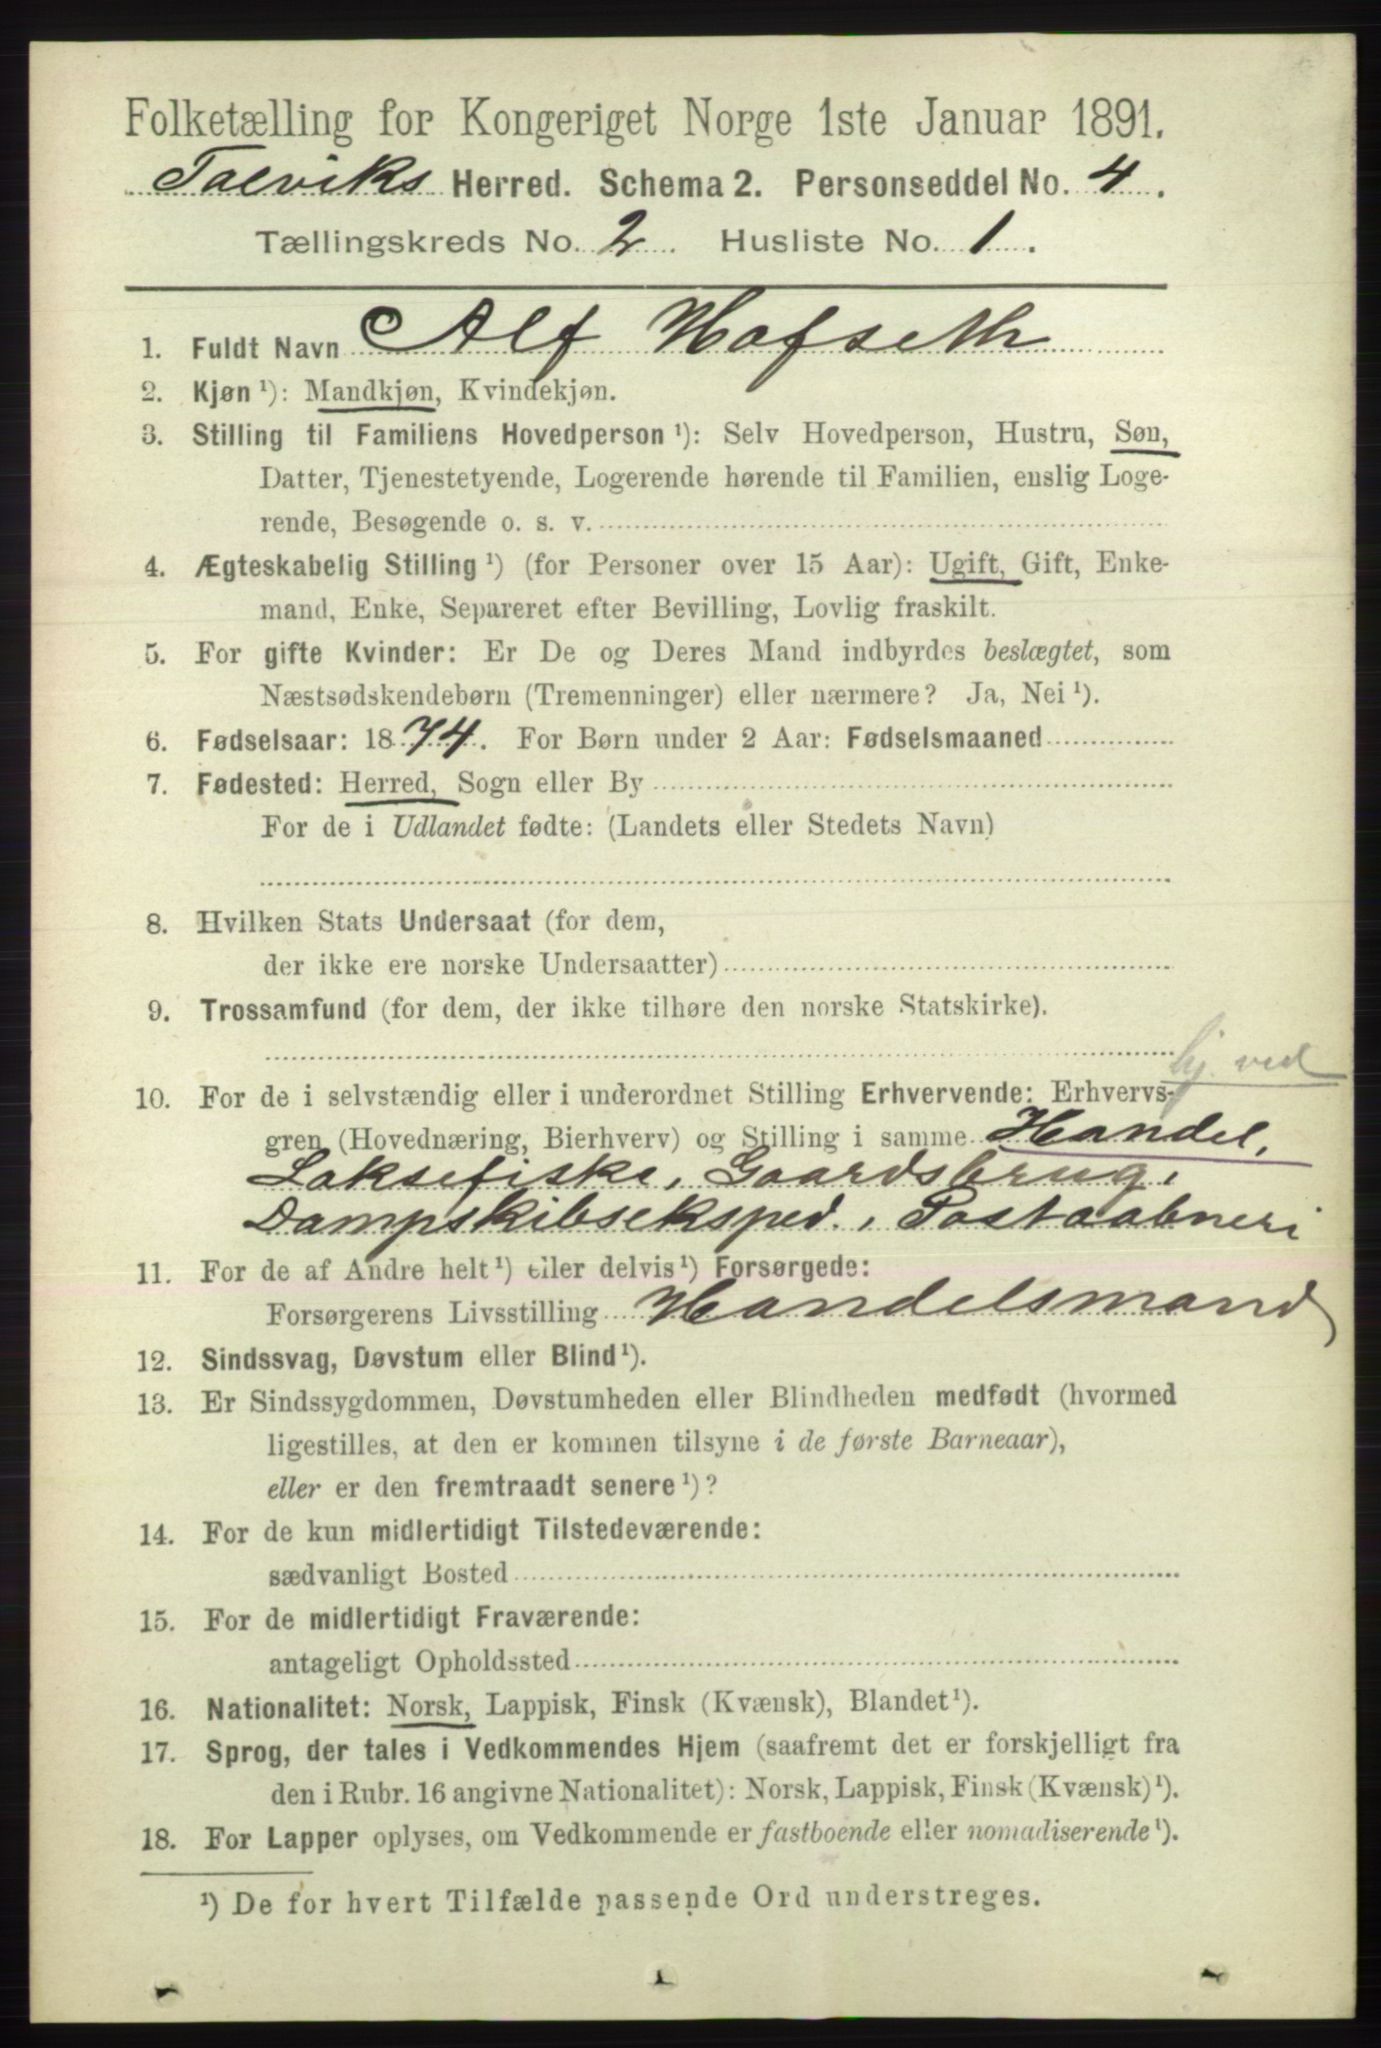 Folketælling for Kongeriget Norge 1ste Januar 1891.
Talviks Herred. Schema 2. Personseddel No. 4.
Tællingskreds No. 2 Husliste No. 1.
1. Fuldt Navn Alf Hofseth
2. Kjøn ¹): Mandkjøn, Kvindekjøn.
3. Stilling til Familiens Hovedperson ¹): Selv Hovedperson, Hustru, Søn,
Datter, Tjenestetyende, Logerende hørende til Familien, enslig Loge-
rende, Besøgende o. s. v.
4. Ægteskabelig Stilling ¹) (for Personer over 15 Aar): Ugift, Gift, Enke-
mand, Enke, Separeret efter Bevilling, Lovlig fraskilt.
5. For gifte Kvinder: Er De og Deres Mand indbyrdes beslægtet, som
Næstsødskendebørn (Tremenninger) eller nærmere? Ja, Nei ¹).
6. Fødselsaar: 1874. For Børn under 2 Aar: Fødselsmaaned
7. Fødested: Herred, Sogn eller By
For de i Udlandet fødte: (Landets eller Stedets Navn)
8. Hvilken Stats Undersaat (for dem,
der ikke ere norske Undersaatter)
9. Trossamfund (for dem, der ikke tilhøre den norske Statskirke).
hj. ved
10. For de i selvstændig eller i underordnet Stilling Erhvervende: Erhvervs-
gren (Hovednæring, Bierhverv) og Stilling i samme Handel,
Laksefiske, Gaardsbrug,
Dampskibseksped., Postaabneri
11. For de af Andre helt ¹) eller delvis ¹) Forsørgede:
Forsørgerens Livsstilling Handelsmand
12. Sindssvag, Døvstum eller Blind ¹).
13. Er Sindssygdommen, Døvstumheden eller Blindheden medfødt (hvormed
ligestilles, at den er kommen tilsyne i de første Barneaar),
eller er den fremtraadt senere ¹)?
14. For de kun midlertidigt Tilstedeværende:
sædvanligt Bosted
15. For de midlertidigt Fraværende:
antageligt Opholdssted
16. Nationalitet: Norsk, Lappisk, Finsk (Kvænsk), Blandet ¹).
17. Sprog, der tales i Vedkommendes Hjem (saafremt det er forskjelligt fra
den i Rubr. 16 angivne Nationalitet): Norsk, Lappisk, Finsk (Kvænsk) ¹).
18. For Lapper oplyses, om Vedkommende er fastboende eller nomadiserende ¹).
¹) De for hvert Tilfælde passende Ord understreges.